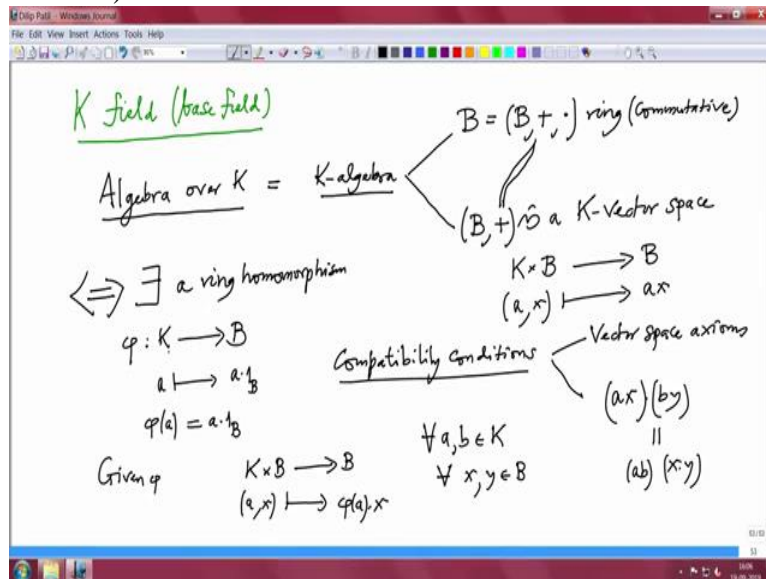 Dilip Patil - Windows Journal
File Edit View Insert Actions Tools Help
K field (base field)
B = (B, +, ·) ring (Commutative)
Algebra over K = K-algebra
(B, +) is a K-vector space
K × B ⟶ B
(a, x) ⟼ ax
⟺ ∃ a ring homomorphism
φ : K ⟶ B
a ⟼ a·1_B
φ(a) = a·1_B
Compatibility conditions
Vector space axioms
(ax)·(by)
||
(ab) (x·y)
∀ a, b ∈ K
∀ x, y ∈ B
Given φ
K × B ⟶ B
(a, x) ⟼ φ(a)·x
53